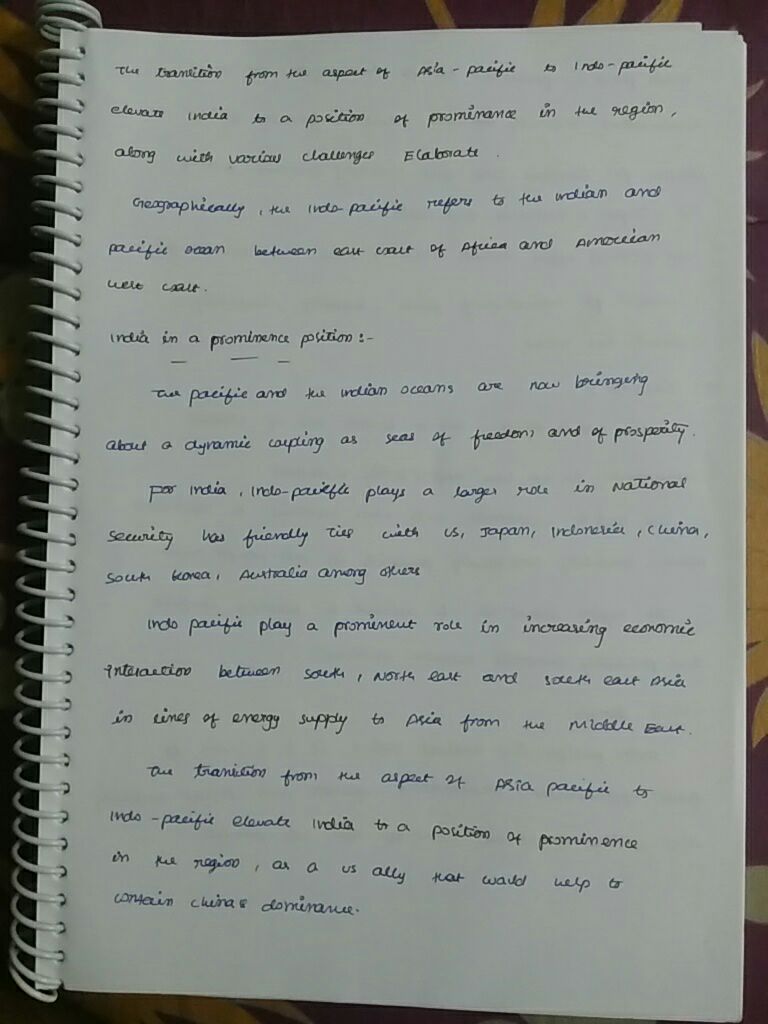 The transition from the aspect of Asia - pacific to Indo - pacific
elevate India to a position of prominance in the region,
along with various challenges Elaborate.
Geographically, the Indo-pacific refers to the indian and
pacific ocean between east coast of Africa and American
west coast.
India in a prominence position :-
The pacific and the indian oceans are now bringing
about a dynamic coupling as seas of freedom and of prosperity.
For India, Indo-pacific plays a larger role in National
security has friendly ties with US, Japan, Indonesia, China,
South Korea, Australia among others
Indo pacific play a prominent role in increasing economic
interaction between south, North east and south east Asia
in lines of energy supply to Asia from the Middle East.
The tranition from the aspect of Asia pacific to
Indo - pacific elevate India to a position of prominence
in the region, as a us ally that would help to
contain China's dominance.